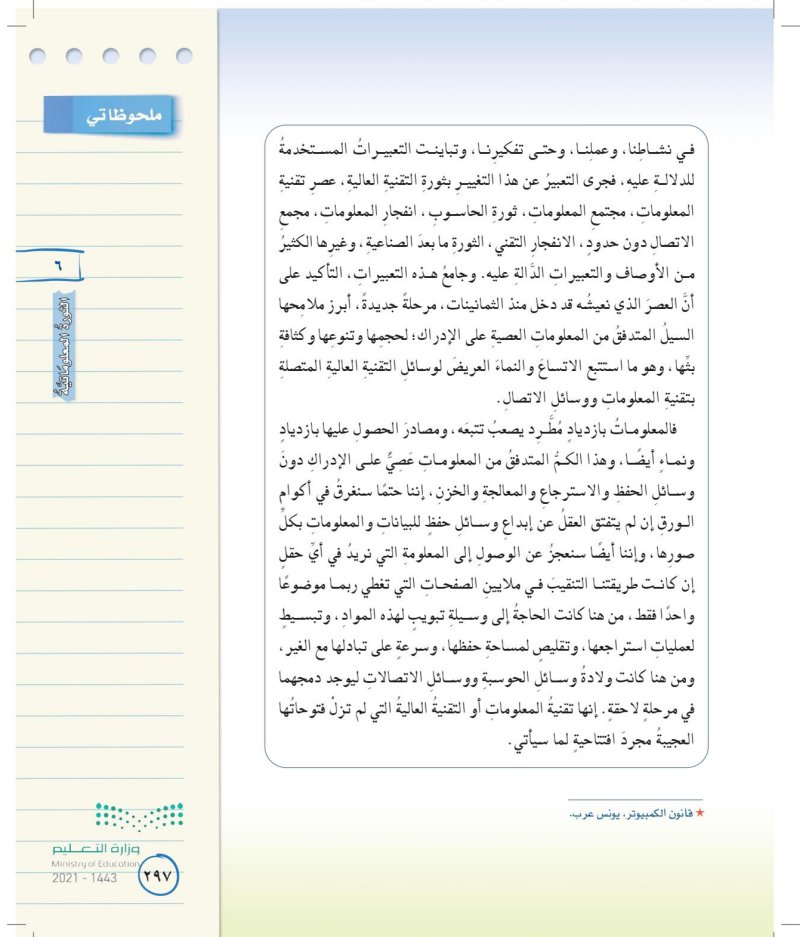 ملحوظاتي
٦
الثورةُ المعلوماتيَّةُ
في نشاطِنا، وعملِنا، وحتى تفكيرِنا، وتباينت التعبيراتُ المستخدمةُ
للدلالةِ عليهِ، فجرى التعبيرُ عن هذا التغييرِ بثورةِ التقنيةِ العاليةِ، عصرِ تقنيةِ
المعلوماتِ، مجتمعِ المعلوماتِ، ثورةِ الحاسوبِ، انفجارِ المعلوماتِ، مجمعِ
الاتصالِ دون حدودٍ، الانفجارِ التقني، الثورةِ ما بعدَ الصناعيةِ، وغيرِها الكثيرُ
من الأوصاف والتعبيراتِ الدَّالةِ عليه. وجامعُ هذه التعبيراتِ، التأكيد على
أنَّ العصرَ الذي نعيشُه قد دخل منذ الثمانينات، مرحلةً جديدةً، أبرز ملامحِها
السيلُ المتدفقُ من المعلوماتِ العصيةِ على الإدراك؛ لحجمِها وتنوعِها وكثافةِ
بثِّها، وهو ما استتبع الاتساعَ والنماءَ العريضَ لوسائلِ التقنيةِ العاليةِ المتصلةِ
بتقنيةِ المعلوماتِ ووسائلِ الاتصالِ.
فالمعلوماتُ بازديادٍ مُطَّرِد يصعبُ تتبعَه، ومصادرَ الحصولِ عليها بازديادٍ
ونماءٍ أيضًا، وهذا الكمُّ المتدفقُ من المعلوماتِ عَصِيٌّ على الإدراكِ دونَ
وسائلِ الحفظِ والاسترجاعِ والمعالجةِ والخزنِ، إننا حتمًا سنغرقُ في أكوام
الورقِ إن لم يتفتق العقلُ عن إبداعِ وسائلِ حفظٍ للبياناتِ والمعلوماتِ بكلِّ
صورِها، وإننا أيضًا سنعجزُ عن الوصولِ إلى المعلومةِ التي نريدُ في أيِّ حقلٍ
إن كانت طريقتنا التنقيبَ في ملايينِ الصفحاتِ التي تغطي ربما موضوعًا
واحدًا فقط، من هنا كانت الحاجةُ إلى وسيلةِ تبويبٍ لهذه الموادِ، وتبسيطٍ
لعملياتِ استراجعِها، وتقليصٍ لمساحةِ حفظِها، وسرعةٍ على تبادلِها مع الغيرِ،
ومن هنا كانت ولادةُ وسائلِ الحوسبةِ ووسائلِ الاتصالاتِ ليوجد دمجهما
في مرحلةٍ لاحقةٍ. إنها تقنيةُ المعلوماتِ أو التقنيةُ العاليةُ التي لم تزلْ فتوحاتُها
العجيبةُ مجردَ افتتاحيةٍ لما سيأتي.
★ قانون الكمبيوتر، يونس عرب.
وزارة التعليم
Ministry of Education
2021 - 1443
٢٩٧